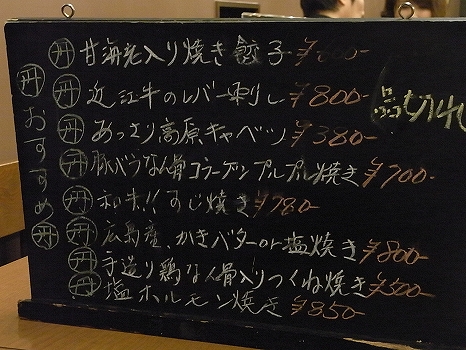 丹 甘海老入り焼き餃子
丹 近江牛のレバー刺し ¥800-
品切れ
丹 あっさり高原キャベツ ¥380-
丹 豚バラなん骨コラーゲンプルプル焼き ¥700-
丹 和牛すじ焼き ¥780-
丹 広島産、かきバターor塩焼き ¥800-
丹 手造り鶏なん骨入りつくね焼き ¥500-
丹 塩ホルモン焼き ¥850-
丹おすすめ丹